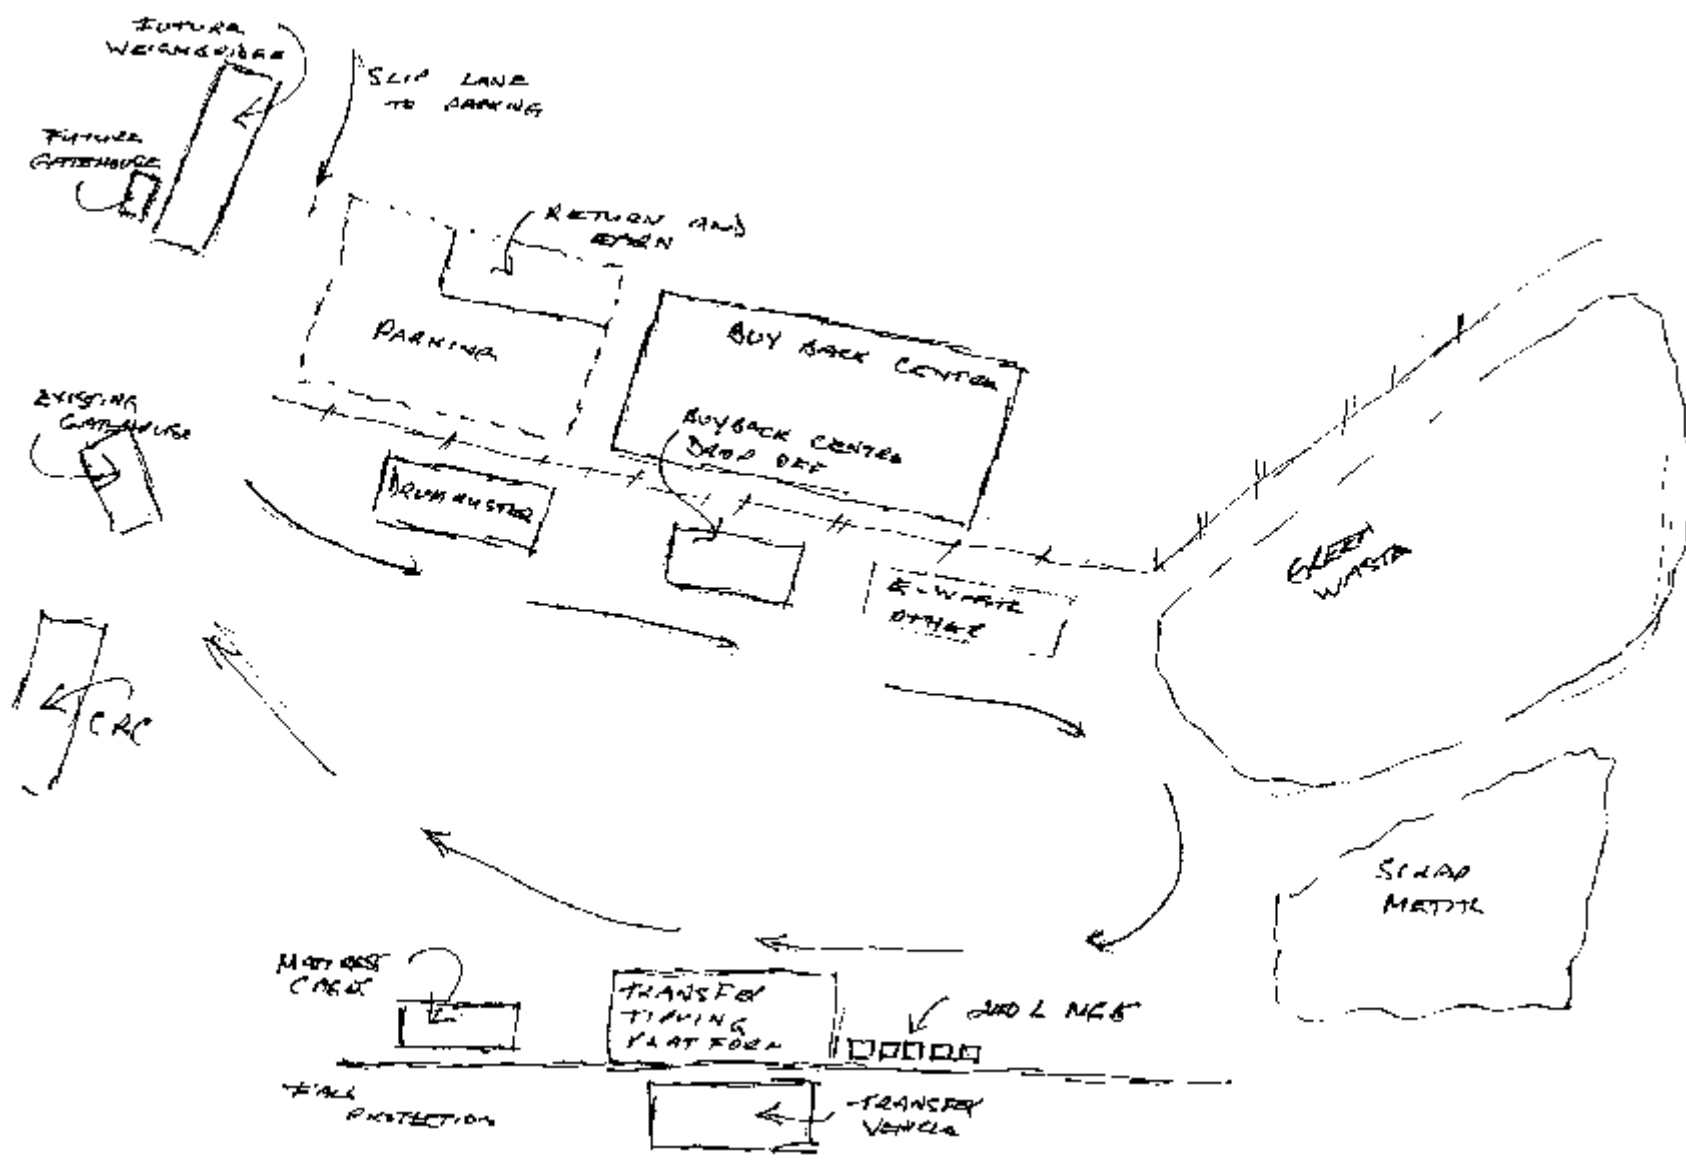 FUTURE
WEIGHBRIDGE
SLIP LANE
TO PARKING
FUTURE
GATEHOUSE
RETURN AND
EARN
PARKING
BUY BACK
CENTRE
EXISTING
GATEHOUSE
BUYBACK CENTRE
DROP OFF
DRUMMUSTER
E-WASTE
OTHER
GREEN
WASTE
CRC
SCRAP
METAL
MATTRESS
CAGE
TRANSFER
TIPPING
PLATFORM
240 L MGB
FALL
PROTECTION
TRANSFER
VEHICLE